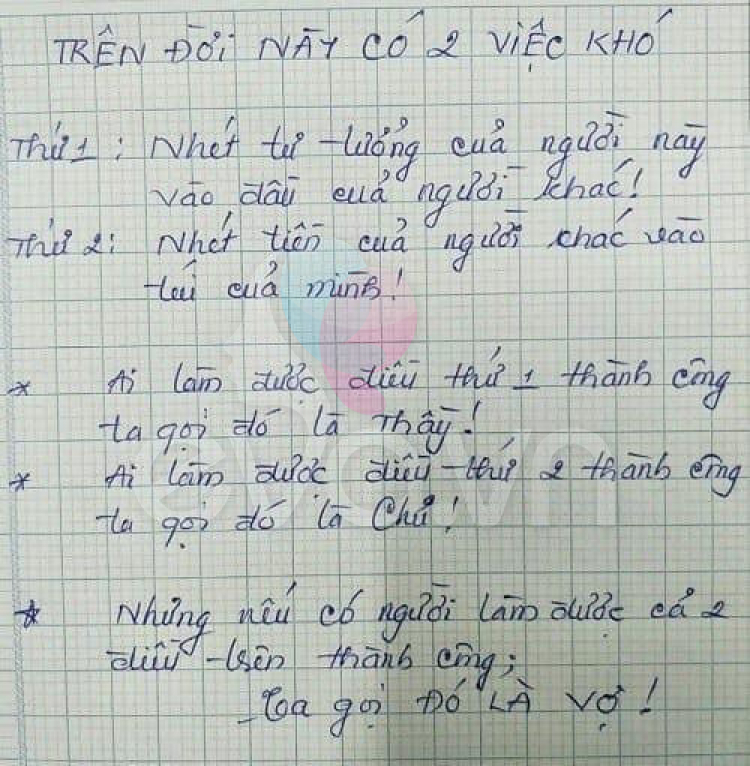 TRÊN ĐỜI NÀY CÓ 2 VIỆC KHÓ
Thứ 1 : Nhét tư tưởng của người này
vào đầu của người khác!
Thứ 2: Nhét tiền của người khác vào
túi của mình!
* Ai làm được điều thứ 1 thành công
ta gọi đó là Thầy!
* Ai làm được điều thứ 2 thành công
ta gọi đó là Chủ!
* Nhưng nếu có người làm được cả 2
điều trên thành công;
Ta gọi ĐÓ LÀ VỢ!